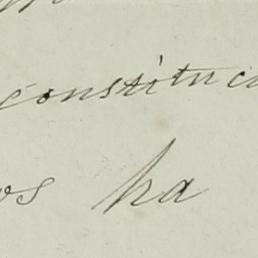 constituci
os ha